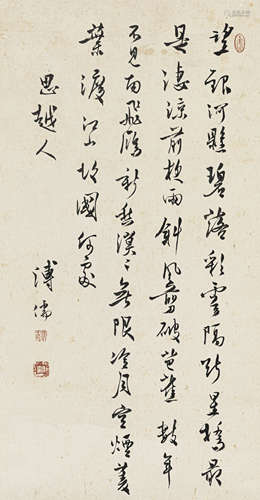 望銀河縣碧落彩雲隔斷星橋最
是淒涼前夜雨斜風剪破芭蕉數年
不見南飛雁新愁漠漠無限冷月空煙萋
葉渡江山故國何處
思越人
溥儒